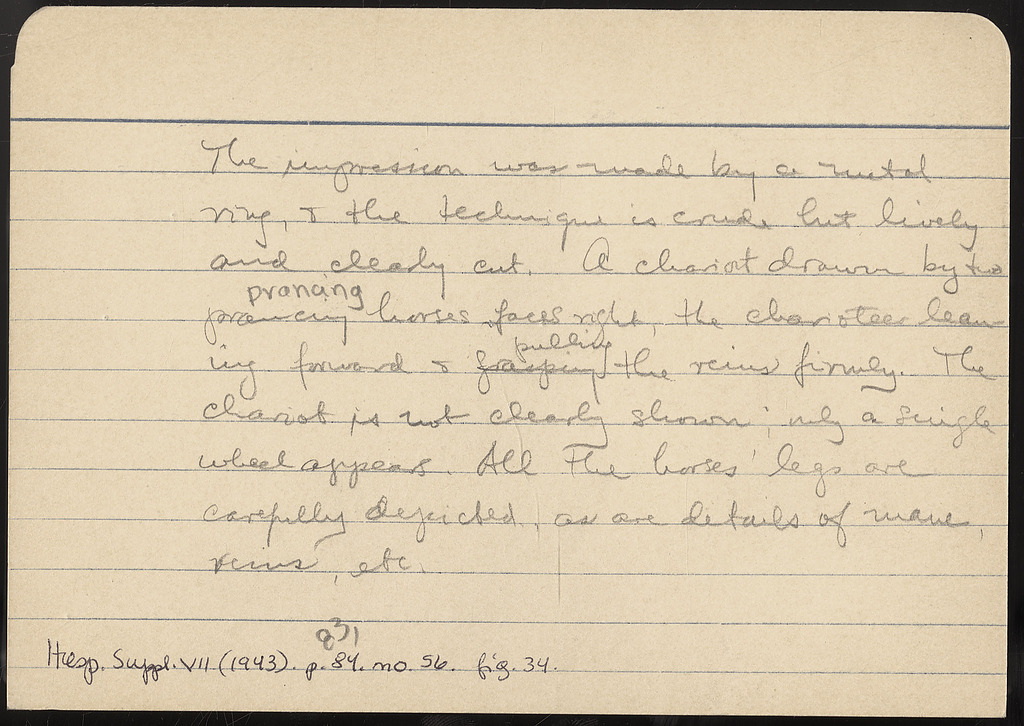 The impression was made by a metal
ring, & the technique is crude but lively
and clearly cut. A chariot drawn by two
prancing
prancing horses faces right, the charioteer lean-
pulling
ing forward & grasping the reins firmly. The
chariot is not clearly shown; only a single
wheel appears. All the horses' legs are
carefully depicted, as are details of mane,
reins, etc.
831
Hesp. Suppl. VII (1943). p. 84. no. 56. fig. 34.